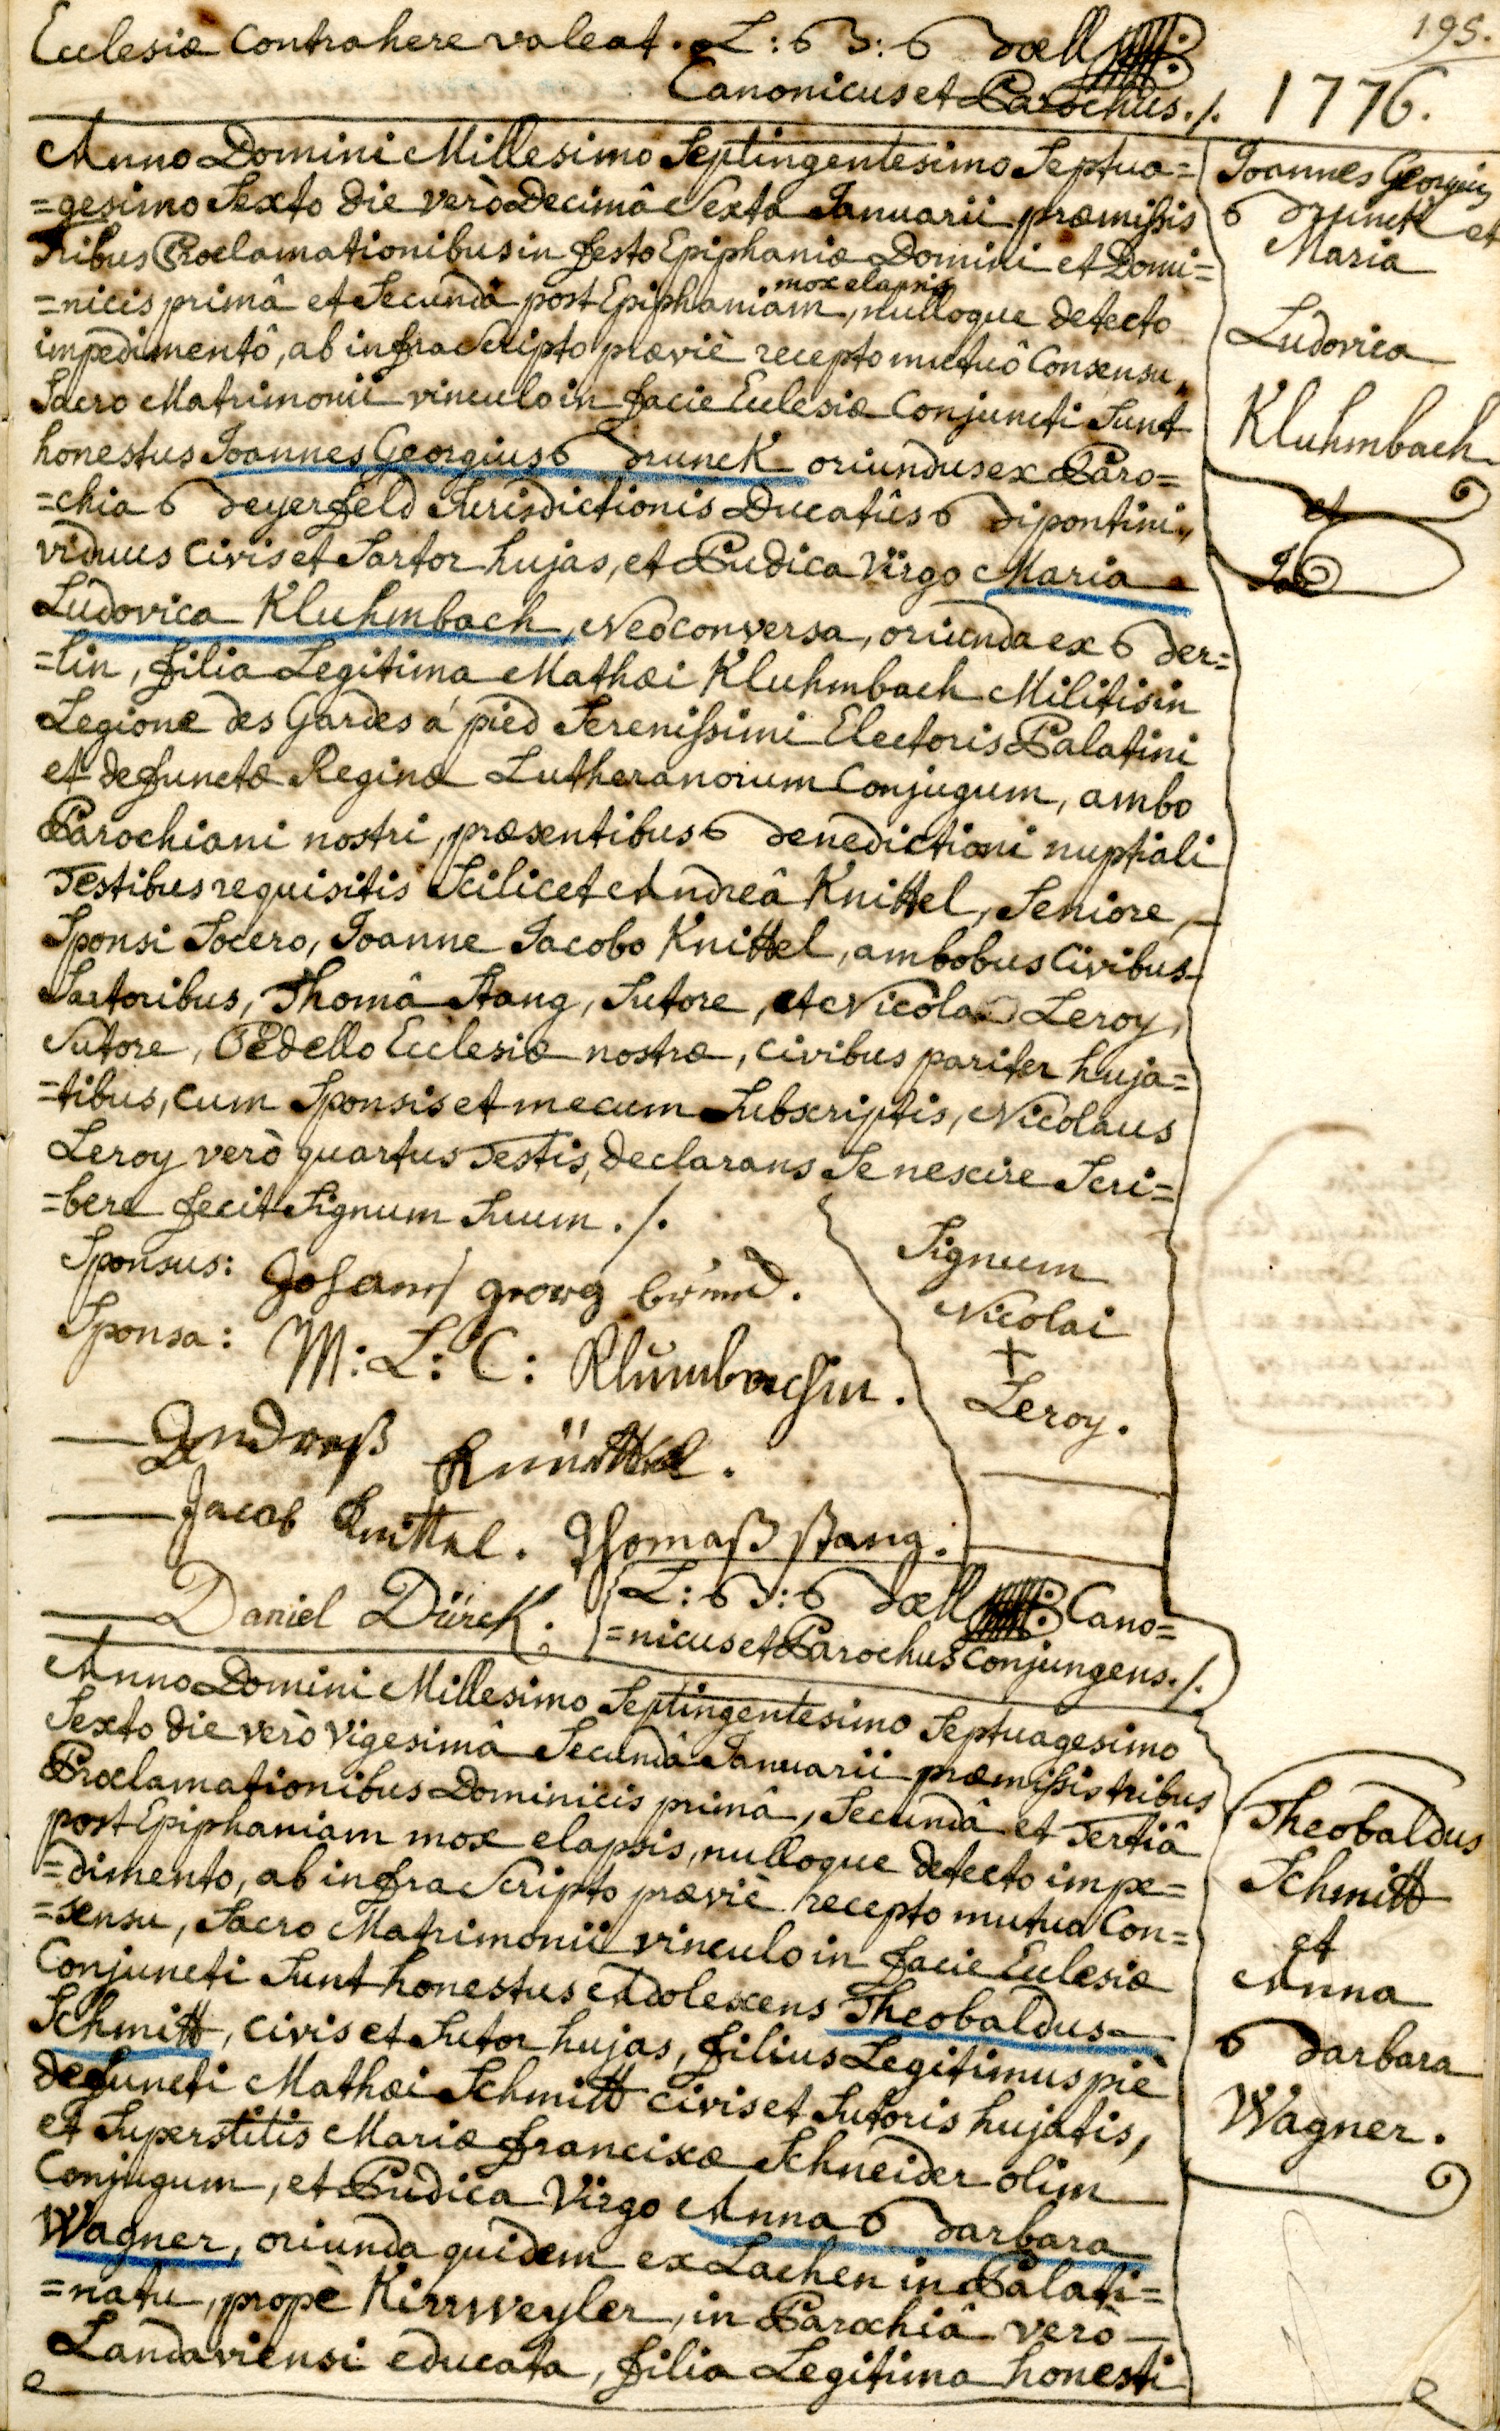 195.
Ecclesiæ Contrahere valeat. L: B: Boell
Canonicus et Parochus ./.
1776.
Anno Domini Millesimo Septingentesimo Septua=
=gesimo Sexto die verò Decimâ Sexta Ianuarii præmissis
Tribus Proclamationibus in festo Epiphaniæ Domini et Domi=
mox elapsis
=nicis primâ et Secundâ post Epiphaniam, nulloque detecto
impedimentô, ab infra Scripto præviè recepto mutuô Consensu,
Sacro Matrimonii vinculo in facie Ecclesiæ Conjuncti Sunt
honestus Ioannes Georgius Brunck oriundus ex Paro=
=chia Beyerfeld Iurisdictionis Ducatûs Bipontini,
viduus Civis et Sartor hujas, et Pudica Virgo Maria
Ludovica Kluhmbach, Neoconversa, oriunda ex Ber=
=lin, filia Legitima Mathæi Kluhmbach Militis in
Legione des Gardes á pied Serenissimi Electoris Palatini
et defunctæ Reginæ Lutheranorum Conjugum, ambo
Parochiani nostri, præsentibus Benedictioni nuptiali
Testibus requisitis Scilicet Andreâ Knittel, Seniore,
Sponsi Socero, Ioanne Iacobo Knittel, ambobus Civibus
Sartoribus, Thomâ Stang, Sutore, et Nicolao Leroy,
Sutore, Pedello Ecclesiæ nostræ, civibus pariter huja=
=tibus, cum Sponsis et mecum Subscriptis, Nicolaus
Leroy verò quartus Testis, declarans Se nescire Scri=
=bere fecit Signum Suum ./.
Ioannes Georgius
Brunck et
Maria
Ludovica
Kluhmbach
et
Sponsus: Johann georg
Sponsa: M: L: C: Klumbachin.
Signum
Nicolai
+
Leroy.
Andreaß
Jacob Knittel. Thomaß Stang.
Daniel Dürck.
L: B: Boell Cano=
=nicus et Parochus Conjungens ./.
Anno Domini Millesimo Septingentesimo Septuagesimo
Sexto die verò Vigesimâ Secundâ Ianuarii præmissis tribus
Proclamationibus Dominicis primâ, Secundâ et Tertiâ
post Epiphaniam mox elapsis, nulloque detecto impe=
=dimento, ab infra Scripto præviè recepto mutuo Con=
=sensu, Sacro Matrimonii vinculo in facie Ecclesiæ
Conjuncti Sunt honestus Adolescens Theobaldus
Schmitt, civis et Sutor hujas, filius Legitimus piè
defuncti Mathæi Schmitt civis et Sutoris hujatis,
et Superstitis Mariæ franciscæ Schneider olim
Conjugum, et Pudica Virgo Anna Barbara
Wagner, oriunda quidem ex Lachen in Palati=
=natu, propè Kirrweyler, in Parochiâ verò
Landaviensi educata, filia Legitima honesti
Theobaldus
Schmitt
et
Anna
Barbara
Wagner.